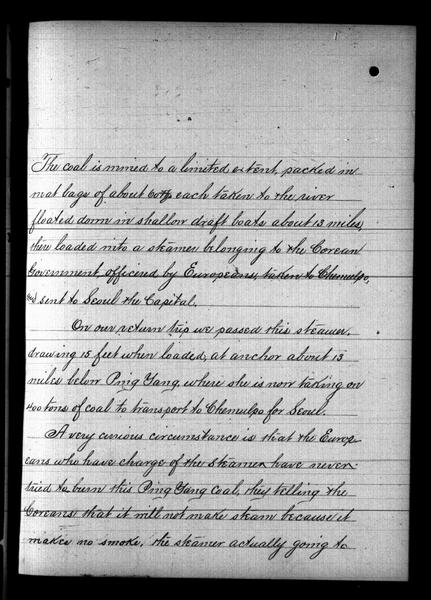 The coal is mined to a limited extent, packed in
mat bags of about 60 lbs each taken to the river
floated down in shallow draft boats about 13 miles,
then loaded into a steamer belonging to the Corean
Government, officered by Europeans, taken to Chemulpo,
and sent to Seoul the Capital.
On our return trip we passed this steamer,
drawing 15 feet when loaded, at anchor about 13
miles below Ping Yang, where she is now taking on
400 tons of coal to transport to Chemulpo for Seoul.
A very curious circumstance is that the Europ-
eans who have charge of the steamer have never
tried to burn this Ping Yang coal, they telling the
Coreans that it will not make steam because it
makes no smoke, the steamer actually going to